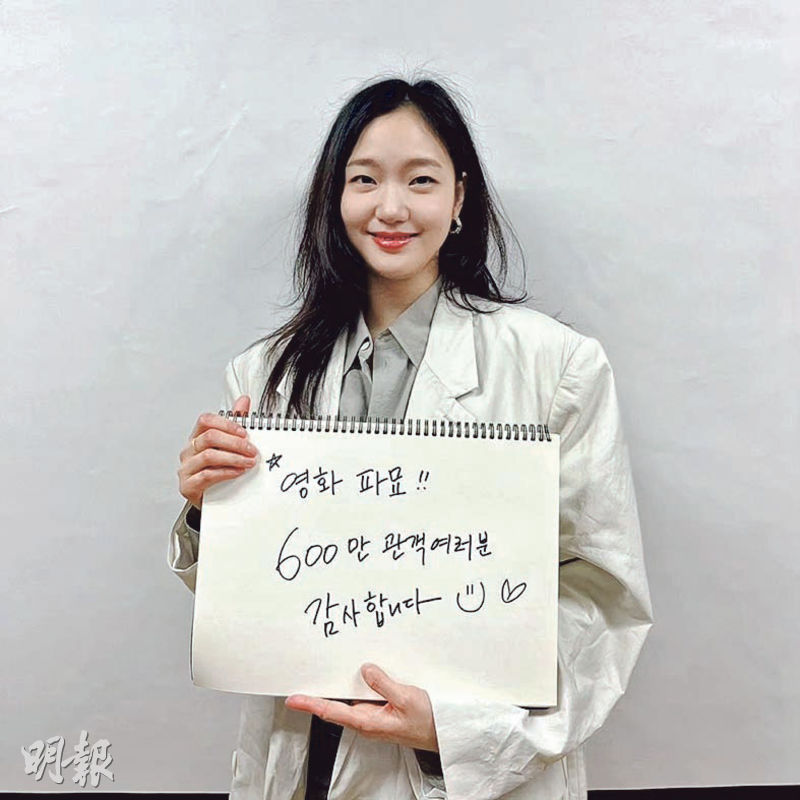 ☆영화 파묘!!
600만 관객여러분
감사합니다
明報